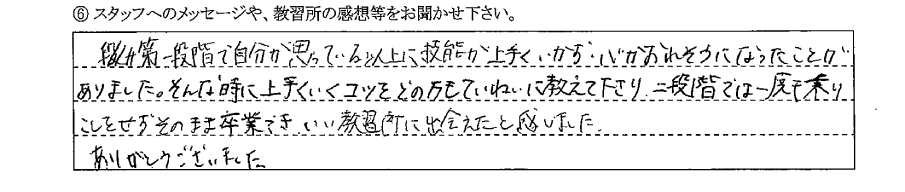 ⑥ スタッフへのメッセージや、教習所の感想等をお聞かせ下さい。
第一段階で自分が思っている以上に技能が上手くいかず心がおれそうになったことが
ありました。そんな時に上手くいくコツをどの方もていねいに教えて下さり、二段階では一度も乗り
こしをせずそのまま卒業でき、いい教習所に出会えたと感じました。
ありがとうございました